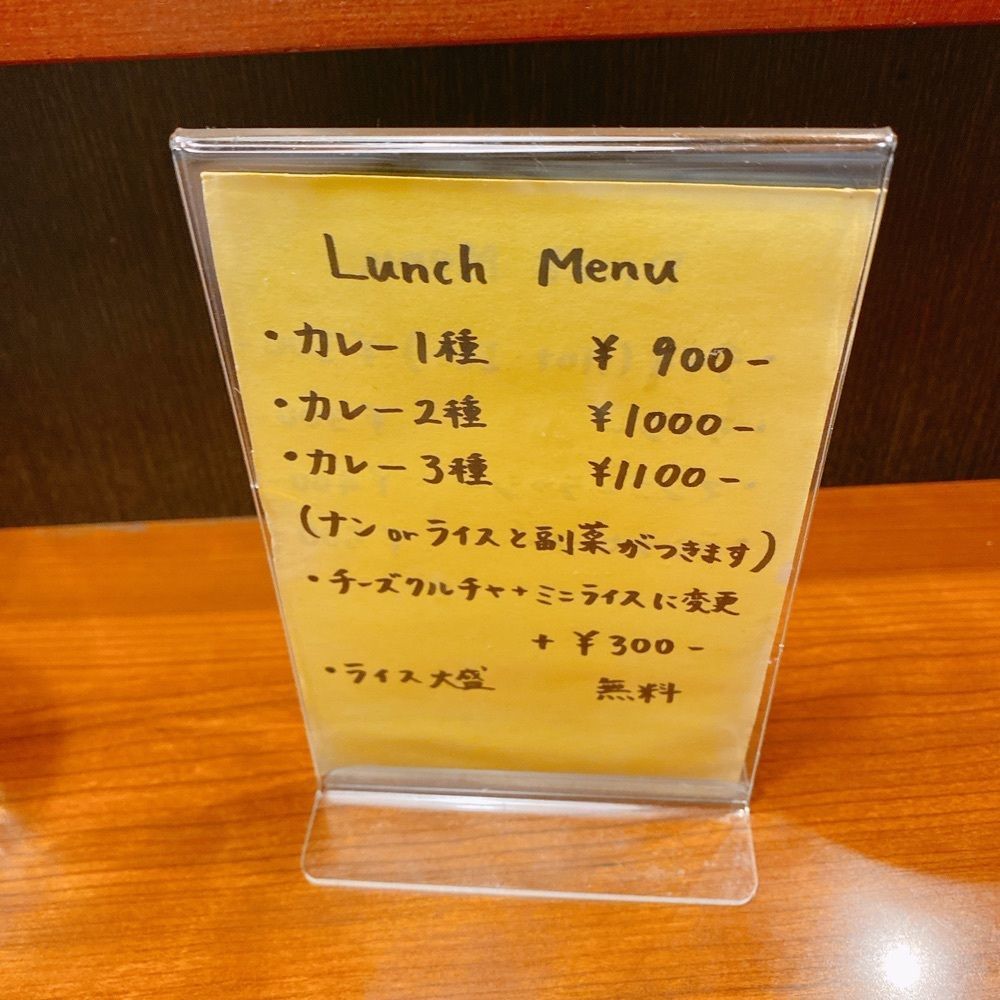 Lunch Menu
・カレー1種 ¥900-
・カレー2種 ¥1000-
・カレー3種 ¥1100-
(ナンorライスと副菜がつきます)
・チーズクルチャ+ミニライスに変更
+ ¥300-
・ライス大盛 無料